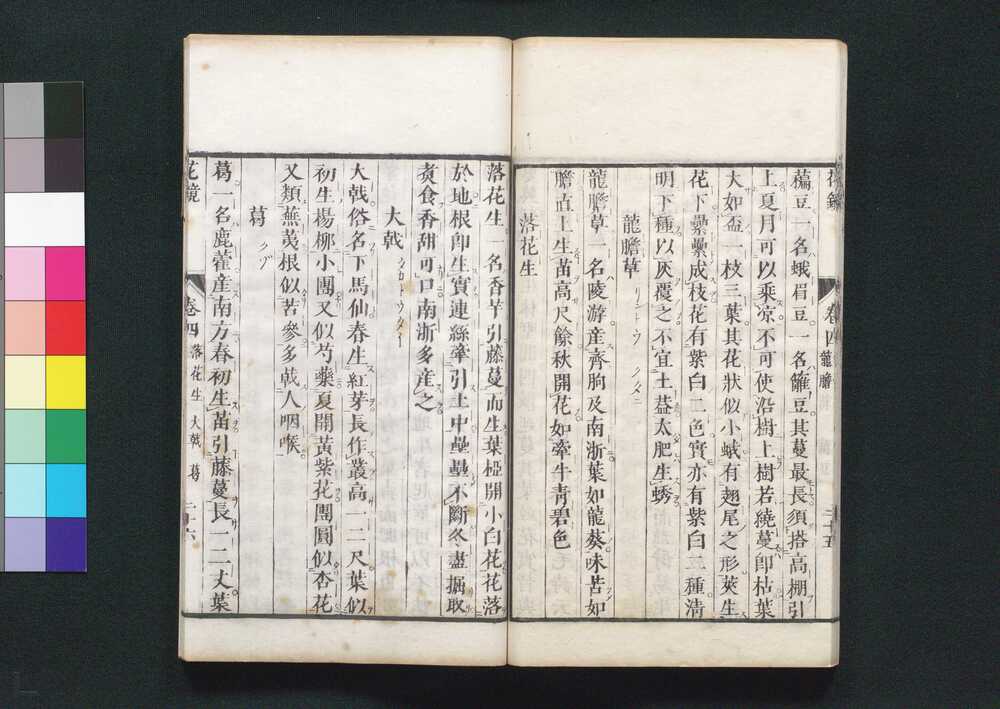 藊豆一名蛾眉豆一名籬豆其蔓最長須搭高棚引
上夏月可以乘凉不可使沿樹上樹若繞蔓卽枯葉
大如盃一枝三葉其花狀似小蛾有翅尾之形莢生
花下纍纍成枝花有紫白二色實亦有紫白三種清
明下種以灰覆之不宜土葢太肥生蟊
龍膽草
龍膽草一名陵游産齊朐及南浙葉如龍葵味苦如
膽直上生苗高尺餘秋開花如牽牛青碧色
落花生
卷四 龍膽
二十五
落花生一名香芋引藤蔓而生葉椏開小白花花落
於地根卽生實連絲牽引土中壘壘不斷冬盡掘取
煑食香甜可口南浙多産之
大戟
大戟俗名下馬仙春生紅芽長作叢高一二尺葉似
初生楊栁小團又似芍藥夏開黃紫花團圓似杏花
又類蕪荑根似苦參多戟人咽喉
葛 クヅ
葛一名鹿藿産南方春初生苗引藤蔓長一二丈葉
花鏡
卷四 落花生 大戟 葛
二十六